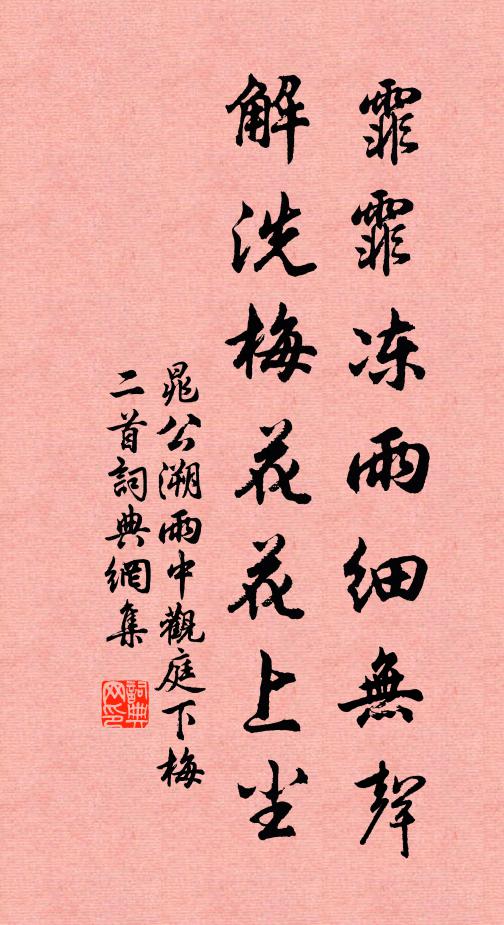 霏霏冻雨细無聲
解洗梅花花上尘
晁公溯雨中觀庭下梅
二首詞典網集
詞典
网印